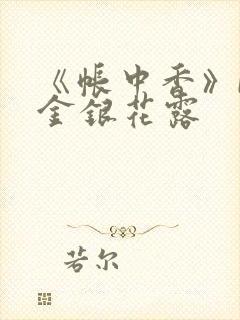 《帐中香》
金银花露
若尔